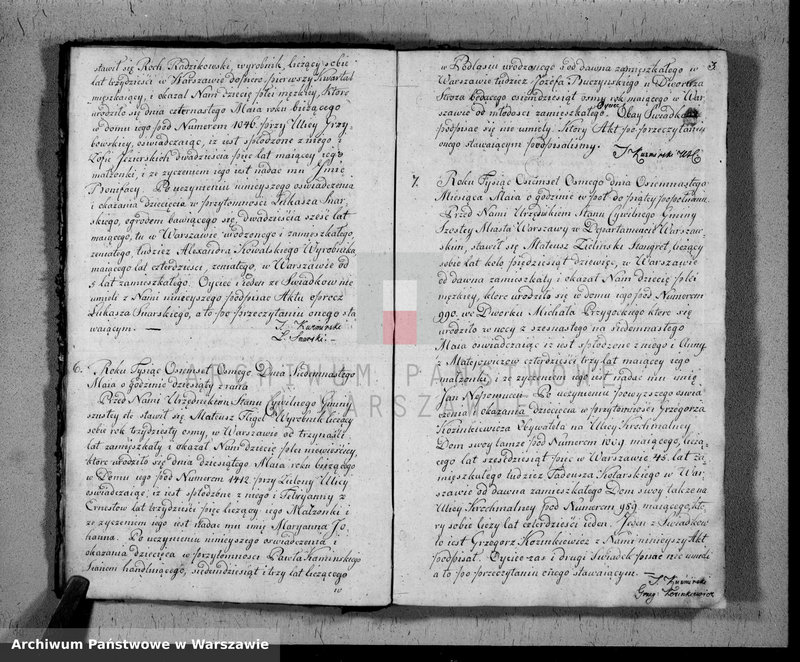 stawił się Roch Radzikowski, wyrobnik, liczący sobie
lat trzydzieści w Warszawie dopiero pierwszy kwartał
mieszkaiący, i okazał Nam dziecię płci męzkiey, które
urodziło się dnia czternastego Maia roku bieżącego
w domu iego pod Numerem 1046. przy Ulicy Grzy-
bowskiey, oświadczaiąc, iż iest spłodzone z niego i
Zofii Jezierskich dwadzieścia pięć lat maiącey iego
małżonki, i ze życzeniem iego iest nadać mu Imie
Bonifacy. Po uczynieniu ninieyszego oświadczenia
i okazania dziecięcia w przytomności Łukasza Snar-
skiego, ogrodem bawiącego się, dwadzieścia sześć lat
maiącego, tu w Warszawie urodzonego i zamieszkałego,
żonatego, tudzież Alexandra Kowalskiego Wyrobnika
maiącego lat czterdzieści, żonatego, w Warszawie od
5 lat zamieszkałego. Oyciec i ieden ze Swiadkow nie
umieli z Nami ninieyszego podpisać Aktu oprocz
Łukasza Snarskiego, a to po przeczytaniu onego sta
waiącym. —
J. Kuźmirski
Ł. Snarski. —
6. Roku Tysiąc Osiemset Osmego Dnia Siedemnastego
Maia o godzinie dziesiąty z rana
Przed Nami Urzędnikiem Stanu Cywilnego Gminy
szóstey etc stawił się Mateusz Figel Wyrobnik liczący
sobie rok trzydziesty osmy, w Warszawie od trzynastu
lat zamieszkały i okazał Nam dziecię płci niewieściey,
które urodziło się dnia dziesiątego Maia roku bieżącego
w Domu iego pod Numerem 1412 przy Zielony Ulicy
oświadczaiąc, iż iest spłodzone z niego i Petryanny z
Ernestow lat trzydzieści pięć liczący, iego Małżonki i
ze życzeniem iego iest nadać mu imię Maryanna Jo
hanna. Po uczynieniu ninieyszego oświadczenia i
okazania dziecięcia w przytomności Pawła Kamińskiego
Sianem handluiącego, siedmdziesiąt i trzy lat liczącego
w
3.
w Podlasiu urodzonego a od dawna zamieszkałego w
Warszawie tudzież Józefa Buczyńskiego w Dworcu
Stróża będącego osiemdziesiąt osmy rok maiącego w War
szawie od młodości zamieszkałego. Obay Swiadkowie
podpisać się nie umieli. Który Akt po przeczytaniu
onego stawaiącym podpisaliśmy.
J. Kuźmirski
7. Roku Tysiąc Osiemset Osmego dnia Osiemnastego
Miesiąca Maia o godzinie w pół do piątey popołudniu.
Przed Nami Urzędnikiem Stanu Cywilnego Gminy
Szostey Miasta Warszawy w Departamencie Warszaw-
skim, stawił się Mateusz Zieliński Stangret, liczący
sobie lat koło pięćdziesiąt dziewięć, w Warszawie
od dawna zamieszkały i okazał Nam dziecię płci
męzkiey, które urodziło się w domu iego pod Numerem
990. we Dworku Michała Przygockiego które się
urodziło w nocy z szesnastego na siedemnastego
Maia oświadczaiąc iż iest spłodzone z niego i Anny
z Mateiewiczow czterdzieści trzy lat maiącey iego
małżonki, i ze życzeniem iego iest nadać mu imię
Jan Nepomucen. Po uczynieniu powyższego oświad
czenia i okazania Dziecięcia w przytomności Grzegorza
Kozinkiewicza Obywatela na Ulicy Krochmalney
Dom swoy tamże pod Numerem 1009. maiącego, liczą-
cego lat sześćdziesiąt pięć w Warszawie 45. lat za-
mieszkałego tudzież Tadeusza Kotarskiego w War-
szawie od dawna zamieszkałego Dom swoy także na
Ulicy Krochmalney pod Numerem 989. maiącego, któ
ry sobie liczy lat czterdzieści ieden. Jeden z Swiadków
to iest Grzegorz Kozinkiewicz z Nami ninieyszy Akt
podpisał. Oyciec zaś i drugi Swiadek pisać nie umieli
a to po przeczytaniu onego stawaiącym.
J. Kuźmirski
Grzeg: Kozinkiewicz
ARCHIWUM PAŃSTWOWE
W WARSZAWIE
Archiwum Państwowe w Warszawie